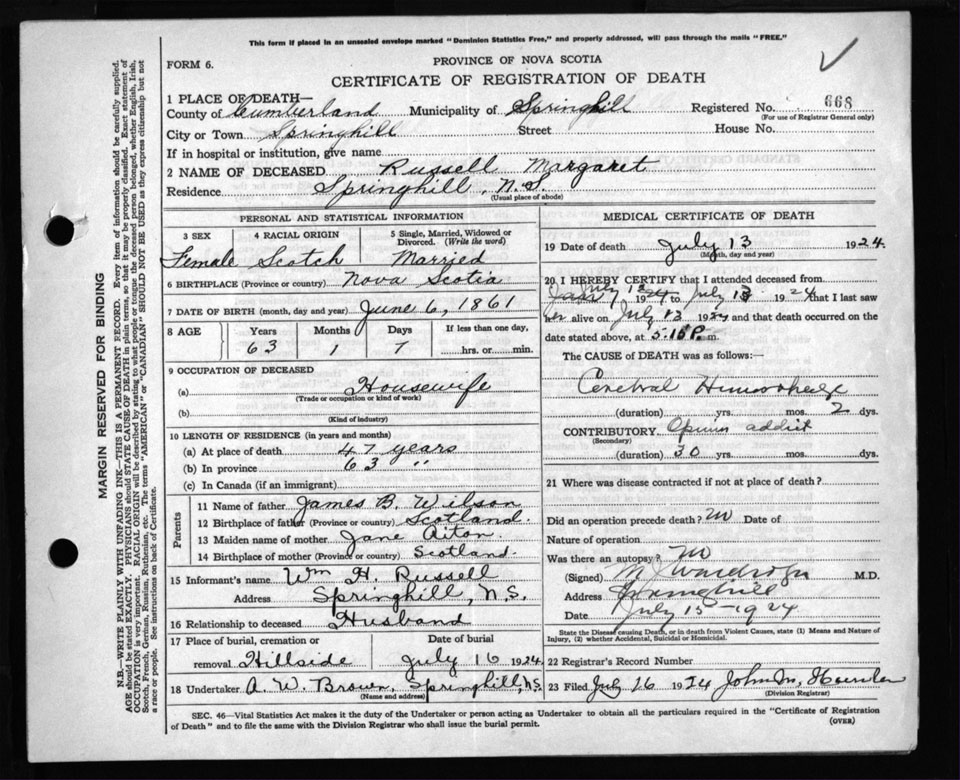 This form if placed in an unsealed envelope marked "Dominion Statistics Free," and properly addressed, will pass through the mails "FREE."
FORM 6.
PROVINCE OF NOVA SCOTIA
CERTIFICATE OF REGISTRATION OF DEATH
1 PLACE OF DEATH—
County of Cumberland Municipality of Springhill Registered No. 668
(For use of Registrar General only)
City or Town Springhill Street House No.
If in hospital or institution, give name
2 NAME OF DECEASED Russell Margaret
Residence Springhill, N.S.
(Usual place of abode)
PERSONAL AND STATISTICAL INFORMATION
3 SEX 4 RACIAL ORIGIN 5 Single, Married, Widowed or Divorced. (Write the word)
Female Scotch Married
6 BIRTHPLACE (Province or country) Nova Scotia
7 DATE OF BIRTH (month, day and year) June 6, 1861
8 AGE Years Months Days If less than one day,
63 1 7 hrs. or min.
9 OCCUPATION OF DECEASED
(a) Housewife
(Trade or occupation or kind of work)
(b)
(Kind of industry)
10 LENGTH OF RESIDENCE (in years and months)
(a) At place of death 47 years
(b) In province 63 "
(c) In Canada (if an immigrant)
Parents
11 Name of father James B. Wilson
12 Birthplace of father (Province or country) Scotland.
13 Maiden name of mother Jane Aiton
14 Birthplace of mother (Province or country) Scotland.
15 Informant's name Wm H. Russell
Address Springhill, N.S.
16 Relationship to deceased Husband
17 Place of burial, cremation or removal Hillside
Date of burial July 16 1924
18 Undertaker A. W. Brown, Springhill, N.S.
(Name and address)
MEDICAL CERTIFICATE OF DEATH
19 Date of death July 13 1924
(Month, day and year)
20 I HEREBY CERTIFY that I attended deceased from
July 12 1924 to July 13 1924 that I last saw
her alive on July 13 1924 and that death occurred on the
date stated above, at 5.15 P. m.
The CAUSE of DEATH was as follows:
Cerebral Hemorrhage
(duration) yrs. mos. 2 dys.
CONTRIBUTORY Opium addict
(Secondary)
(duration) 30 yrs. mos. dys.
21 Where was disease contracted if not at place of death?
Did an operation precede death? no Date of
Nature of operation
Was there an autopsy? no
(Signed) M.D.
Address Springhill
Date July 15-1924
State the Disease causing Death, or in death from Violent Causes, state (1) Means and Nature of Injury, (2) whether Accidental, Suicidal or Homicidal.
22 Registrar's Record Number
23 Filed July 16 1924 John M,
(Division Registrar)
SEC. 46—Vital Statistics Act makes it the duty of the Undertaker or person acting as Undertaker to obtain all the particulars required in the "Certificate of Registration
of Death" and to file the same with the Division Registrar who shall issue the burial permit.
(OVER)
MARGIN RESERVED FOR BINDING
N.B.—WRITE PLAINLY WITH UNFADING INK—THIS IS A PERMANENT RECORD. Every item of information should be carefully supplied.
AGE should be stated EXACTLY. PHYSICIANS should STATE CAUSE OF DEATH in plain terms, so that it may be properly classified. Exact statement of
OCCUPATION is very important. RACIAL ORIGIN will be described by stating to what people or tongue the deceased person belonged, whether English, Irish,
Scotch, French, German, Russian, Ruthenian, etc. The terms "AMERICAN" or "CANADIAN" SHOULD NOT BE USED as they express citizenship but not
a race or people. See instructions on back of Certificate.